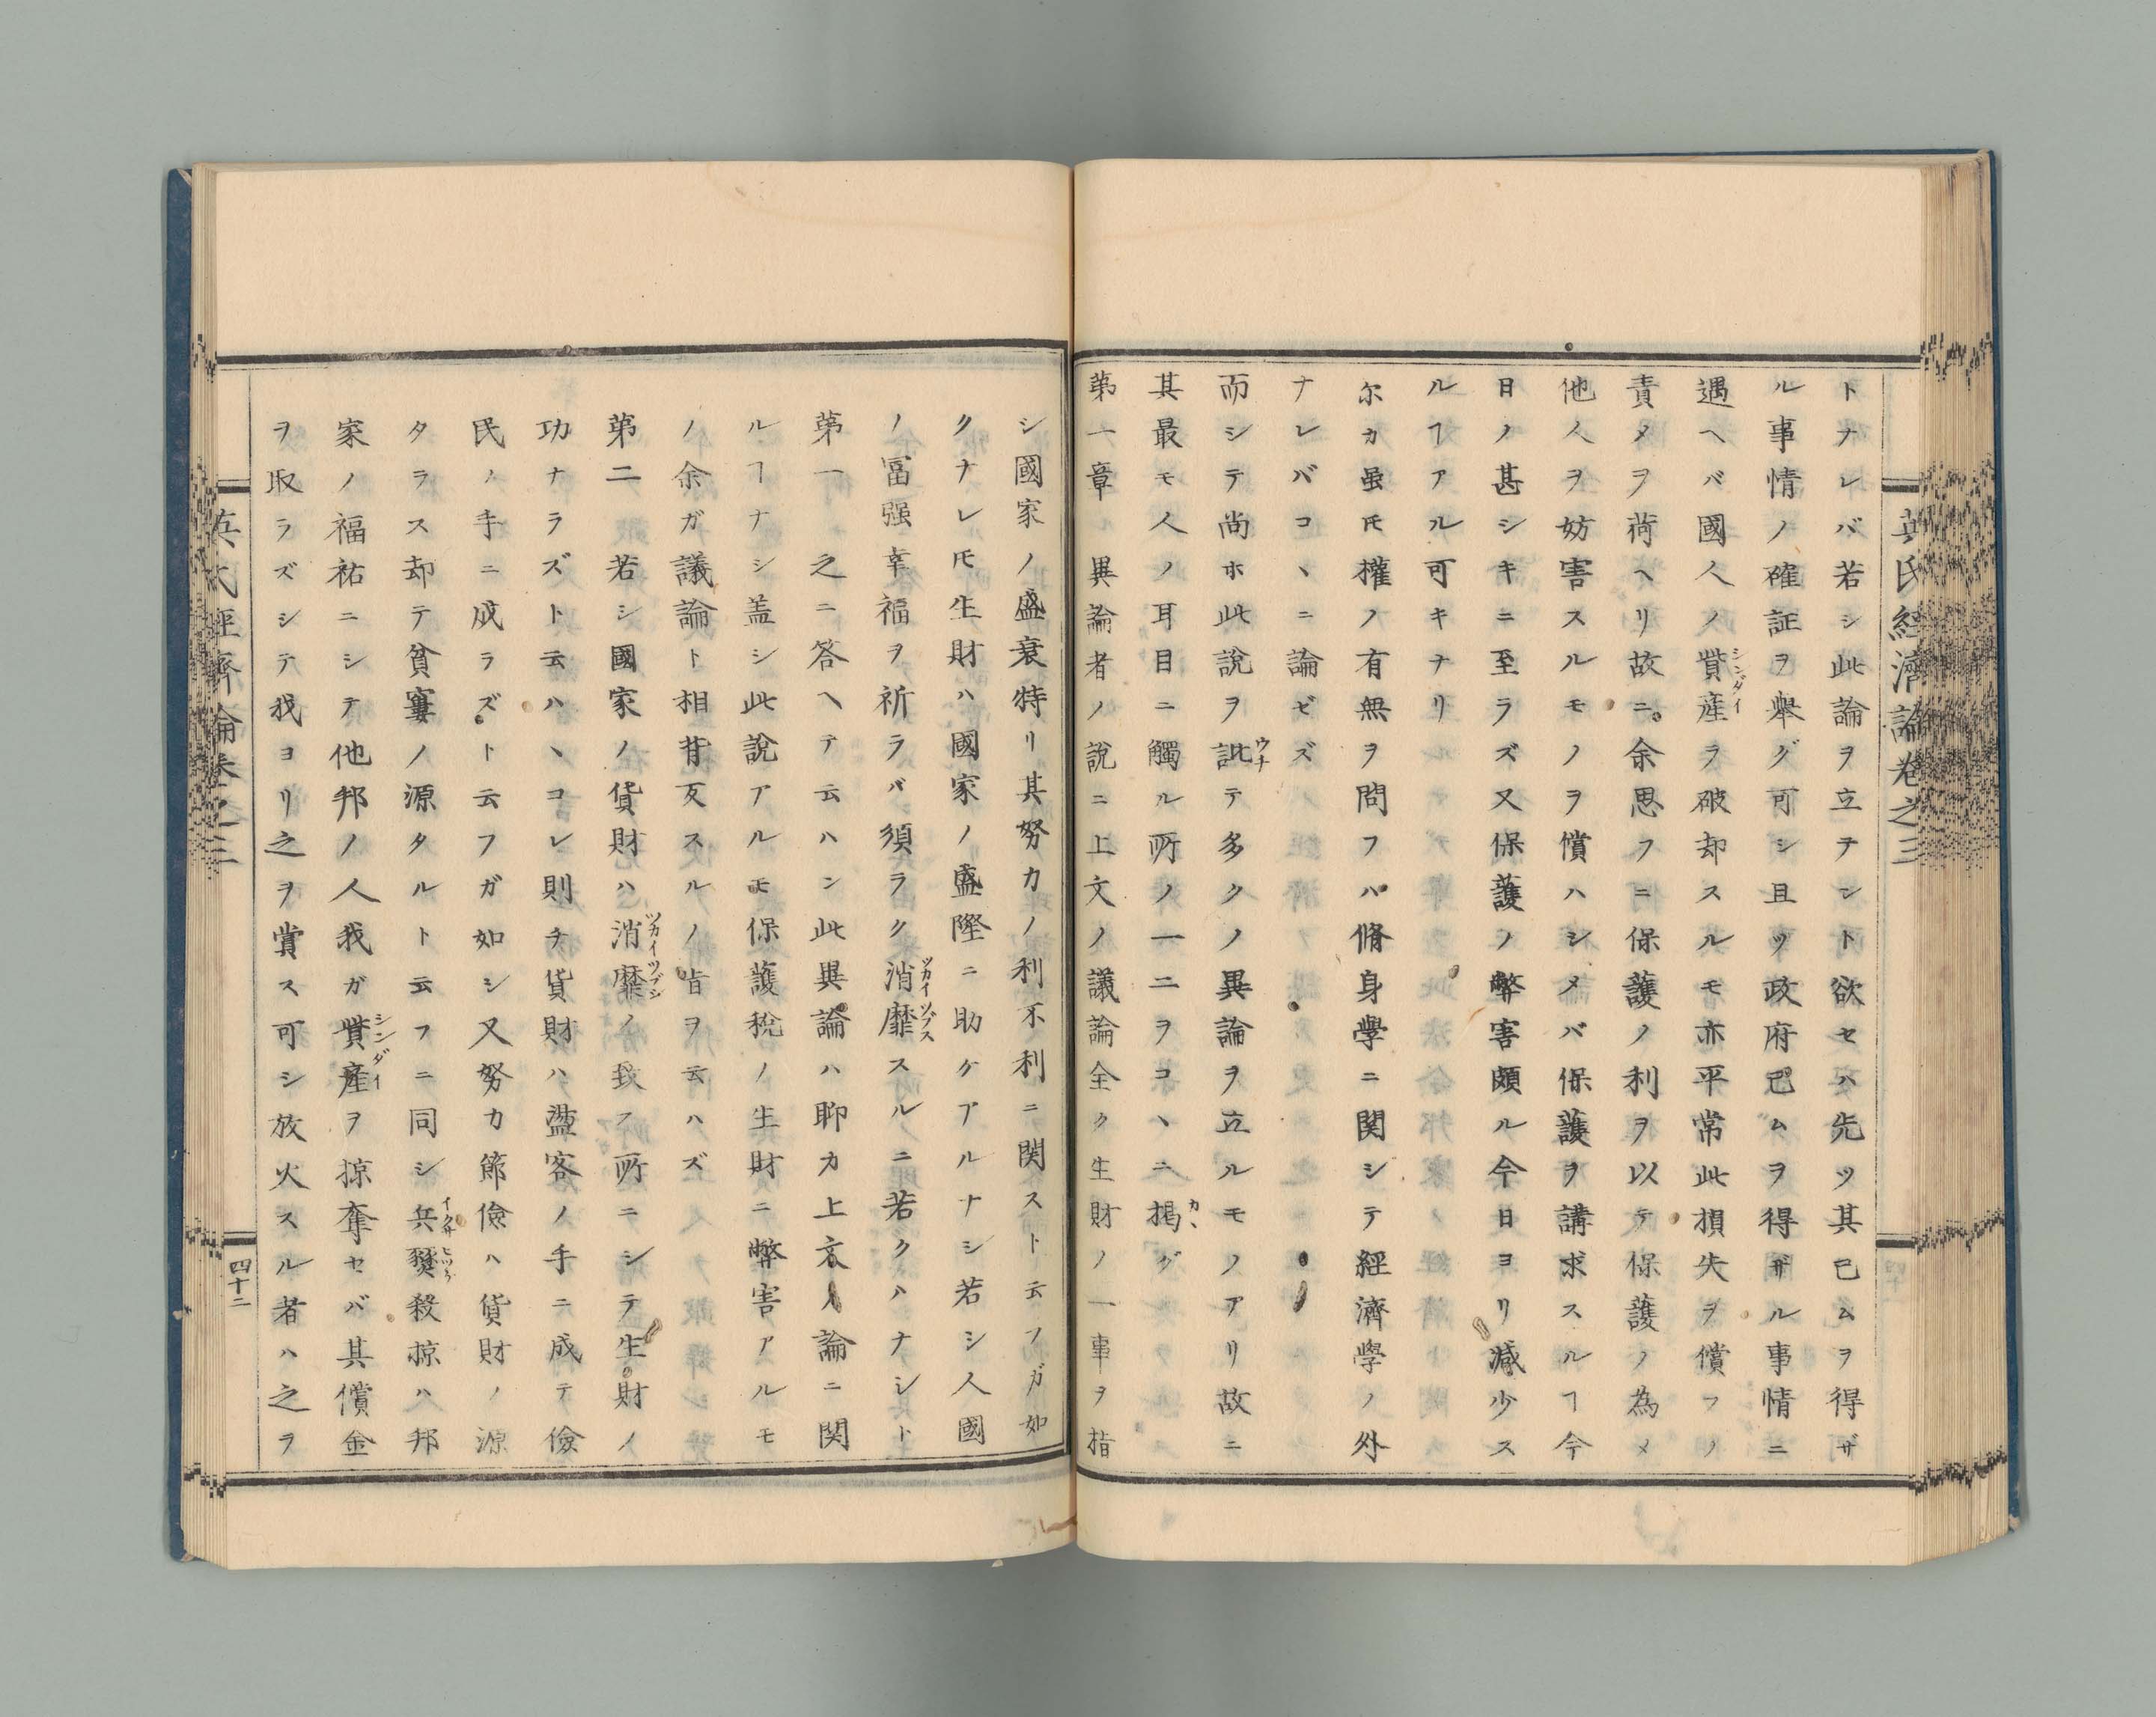 英氏經濟論卷之三
トナレバ若シ此論ヲ立テント欲セハ先ツ其已ムヲ得ザ
ル事情ノ確証ヲ舉グ可シ且ツ政府已ムヲ得ザル事情ニ
遇ヘバ國人ノ貲産ヲ破却スルモ亦平常此損失ヲ償フノ
シンダイ
責メヲ荷ヘリ故ニ余思フニ保護ノ利ヲ以テ保護ノ為メ
他人ヲ妨害スルモノヲ償ハシメバ保護ヲ講求スルヿ今
日ノ甚シキニ至ラズ又保護ノ弊害頗ル今日ヨリ減少ス
ルヿアル可キナリ
尓カ虽𪜈權ノ有無ヲ問フハ脩身學ニ関シテ經濟學ノ外
ナレバコヽニ論ゼズ
而シテ尚ホ此說ヲ訿テ多クノ異論ヲ立ルモノアリ故ニ
其最モ人ノ耳目ニ觸ル所ノ一二ヲコヽニ掲グ
カヽ
第一章 異論者ノ說ニ上文ノ議論全ク生財ノ一事ヲ指
シ國家ノ盛衰特リ其努力ノ利不利ニ関スト云フガ如
クナレ𪜈生財ハ國家ノ盛隆ニ助ケアルナシ若シ人國
ノ冨强幸福ヲ祈ラバ須ラク消靡スルニ若クハナシト
ツカイツブス
第一 之ニ答ヘテ云ハン此異論ハ聊カ上文ノ論ニ関
ルヿナシ盖シ此說アルモ保護税ノ生財ニ弊害アルモ
ノ余ガ議論ト相背反スルノ旨ヲ云ハズ
第二 若シ國家ノ貨財ハ消靡ノ致ス所ニシテ生財ノ
ツカイツブシ
功ナラズト云ハヽコレ則チ貨財ハ蕩客ノ手ニ成テ儉
民ノ手ニ成ラズト云フガ如シ又努力節儉ハ貨財ノ源
タラス却テ貧窶ノ源タルト云フニ同シ兵燹殺掠ハ邦
家ノ福祐ニシテ他邦ノ人我ガ貲産ヲ掠奪セバ其償金
シンダイ
ヲ取ラズシテ我ヨリ之ヲ賞ス可シ放火スル者ハ之ヲ
英氏經濟論卷之三
四十二